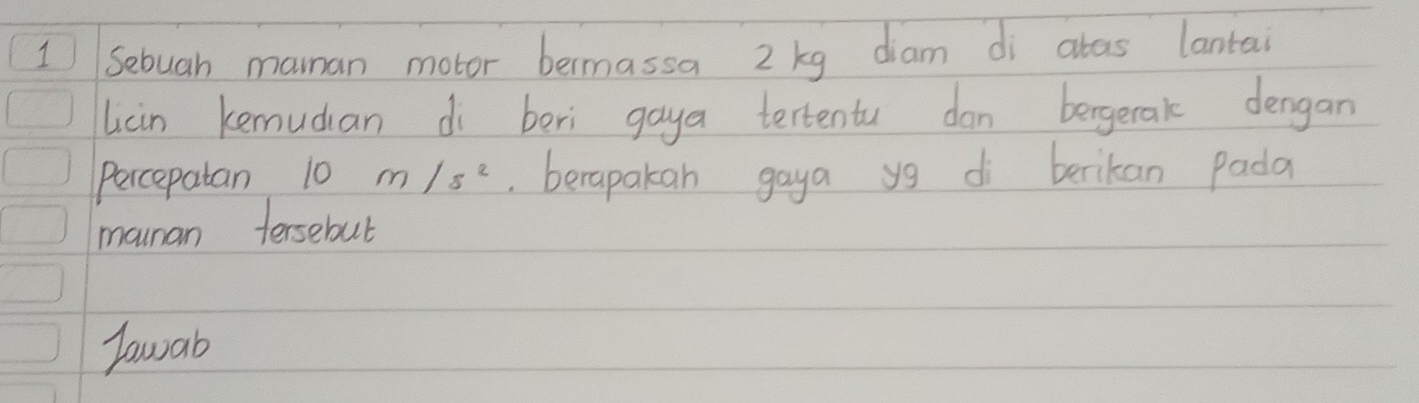 1 Sebuah mainan motor bermassa 2 kg diam di atas lantai
licin kemudian di beri gaya tertentu dan bergerak dengan
Percepatan 10 m/s². berapakah gaya yg di berikan pada
mainan tersebut
Jawab